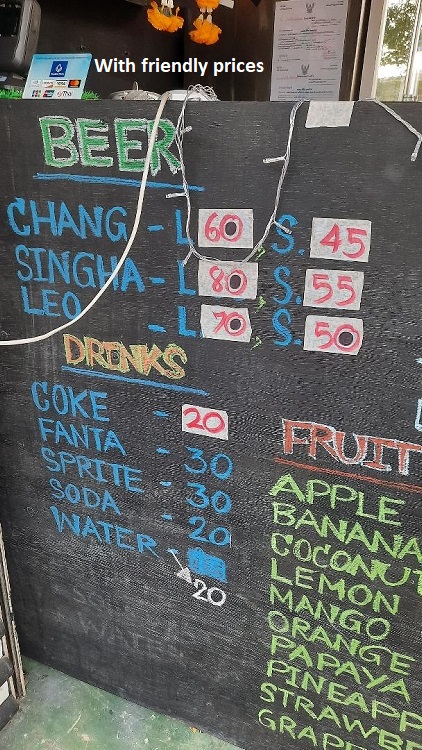 With friendly prices
BEER
CHANG - L 60 S. 45
SINGHA - L 80, S. 55
LEO - L. 70, S. 50
DRINKS
COKE - 20
FANTA - 30
SPRITE - 30
SODA - 20
WATER - 20
FRUIT
APPLE
BANANA
COCONUT
LEMON
MANGO
ORANGE
PAPAYA
PINEAPP
STRAWBE
GRAP